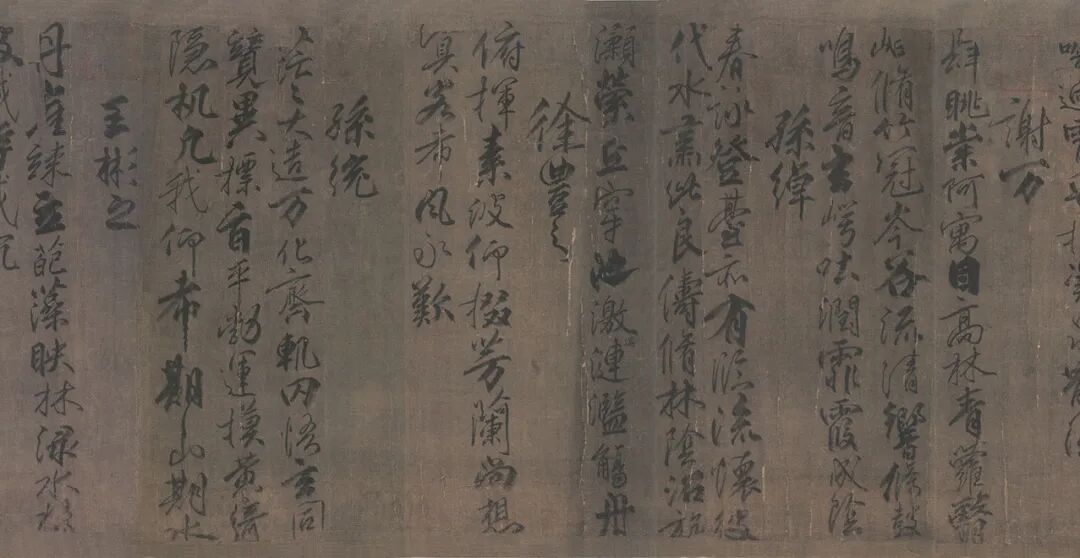 謝万
肆眺崇阿寓目高林青蘿翳
岫脩竹冠岑谷流清響條鼓
鳴音玄崿吐潤霏霧成陰
孫綽
春詠登臺亦有臨流懷彼
代水肅此良儔脩林陰沼旋
瀨縈丘穿池激湍漣濫觴舟
徐豐之
俯揮素波仰掇芳蘭尚想
嘉客希風永歎
孫統
茫茫大造万化齊軌罔悟玄同
競異摽旨平勃運摸黃綺
隱机凡我仰希期山期水
王彬之
丹崖竦立葩藻映林淥水